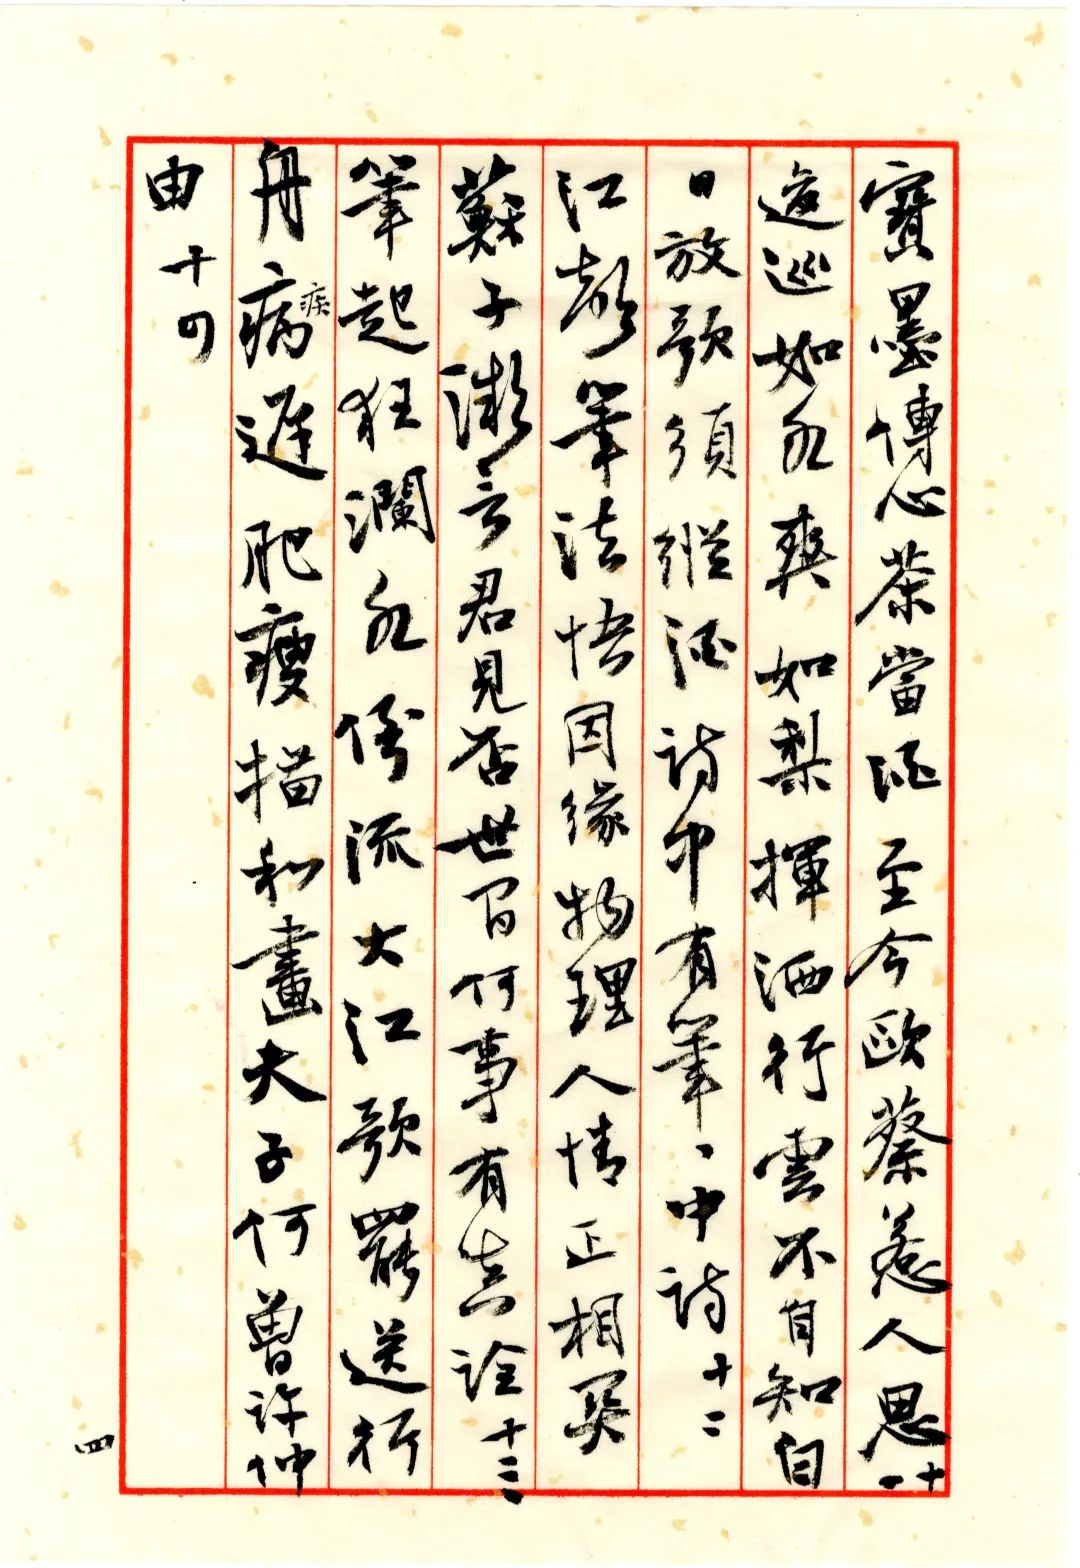 寶墨傳心茶當酒至今歐蔡惹人思十一
逡巡如水爽如梨揮洒行雲不自知白
日放歌須縱酒詩中有筆、中詩十二
江聲筆法悟因緣物理人情正相
蘇子微言君見否世間何事有真詮十三
筆起狂瀾水倒流大江歌罷送行
舟病疾遲肥瘦描和畫夫子何曾許仲
由十四
四